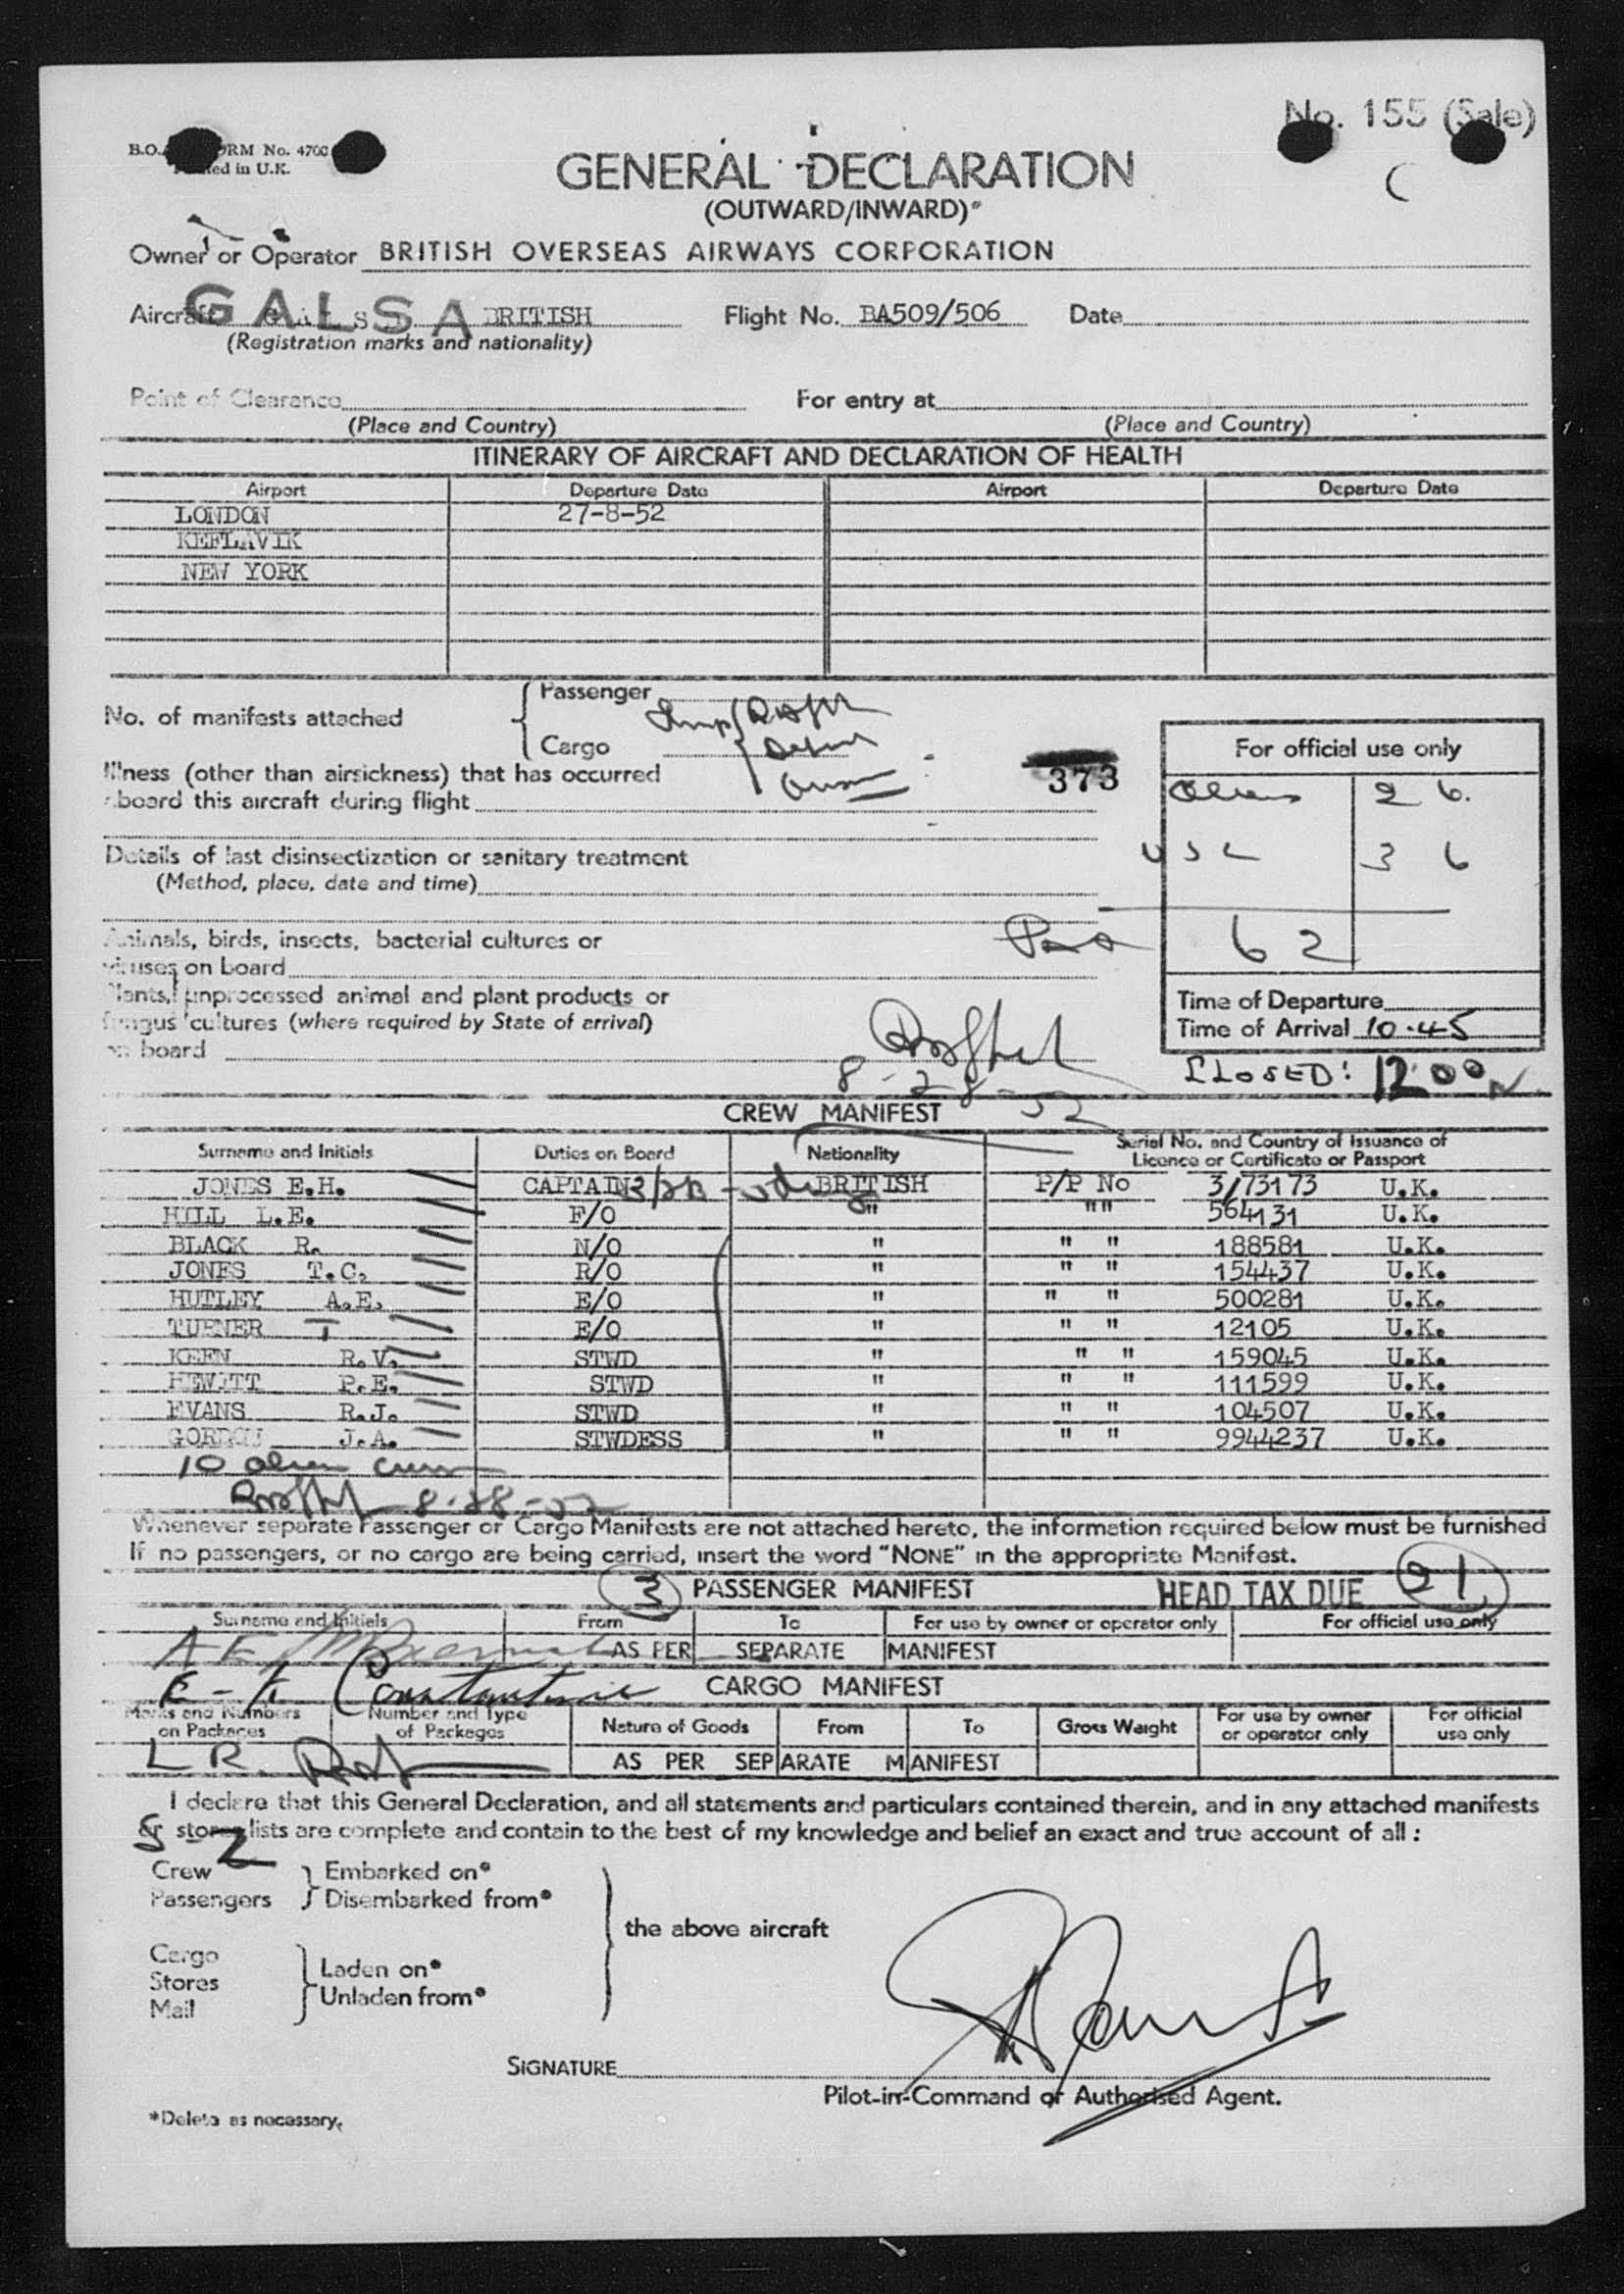 No. 155 (Sale)
B.O. RM No. 4700
ed in U.K.
GENERAL DECLARATION
(OUTWARD/INWARD)*
Owner or Operator BRITISH OVERSEAS AIRWAYS CORPORATION
Aircraft GALSA BRITISH Flight No. BA509/506 Date
(Registration marks and nationality)
Point of Clearance For entry at
(Place and Country) (Place and Country)
ITINERARY OF AIRCRAFT AND DECLARATION OF HEALTH
Airport Departure Date Airport Departure Date
LONDON 27-8-52
KEFLAVIK
NEW YORK
No. of manifests attached
Passenger
Cargo
For official use only
Illness (other than airsickness) that has occurred
373
aboard this aircraft during flight
Aliens 26.
Details of last disinsectization or sanitary treatment
USC 36
(Method, place, date and time)
Animals, birds, insects, bacterial cultures or
62
viruses on board
Plants, unprocessed animal and plant products or
Time of Departure
fungus cultures (where required by State of arrival)
Time of Arrival 10.45
on board
8-28-52
CLOSED: 12:00 N.
CREW MANIFEST
Surname and Initials Duties on Board Nationality Serial No. and Country of Issuance of
Licence or Certificate or Passport
JONES E.H. CAPTAIN BRITISH P/P No 3/73173 U.K.
HILL L.E. F/O " "" 564131 U.K.
BLACK R. N/O " " " 188581 U.K.
JONES T.C. R/O " " " 154437 U.K.
HUTLEY A.E. E/O " " " 500281 U.K.
TURNER T E/O " " " 12105 U.K.
KEEN R.V. STWD " " " 159045 U.K.
HEWITT P.E. STWD " " " 111599 U.K.
EVANS R.J. STWD " " " 104507 U.K.
GORDON J.A. STWDESS " " " 9944237 U.K.
10 alien crew
8-28-52
Whenever separate Passenger or Cargo Manifests are not attached hereto, the information required below must be furnished
If no passengers, or no cargo are being carried, insert the word "NONE" in the appropriate Manifest.
3 PASSENGER MANIFEST HEAD TAX DUE 21
Surname and Initials From To For use by owner or operator only For official use only
AS PER SEPARATE MANIFEST
CARGO MANIFEST
Marks and Numbers on Packages Number and Type of Packages Nature of Goods From To Gross Weight For use by owner or operator only For official use only
AS PER SEPARATE MANIFEST
I declare that this General Declaration, and all statements and particulars contained therein, and in any attached manifests
or stores lists are complete and contain to the best of my knowledge and belief an exact and true account of all :
Crew Embarked on*
Passengers Disembarked from*
the above aircraft
Cargo
Stores Laden on*
Mail Unladen from*
SIGNATURE
Pilot-in-Command or Authorised Agent.
*Delete as necessary.